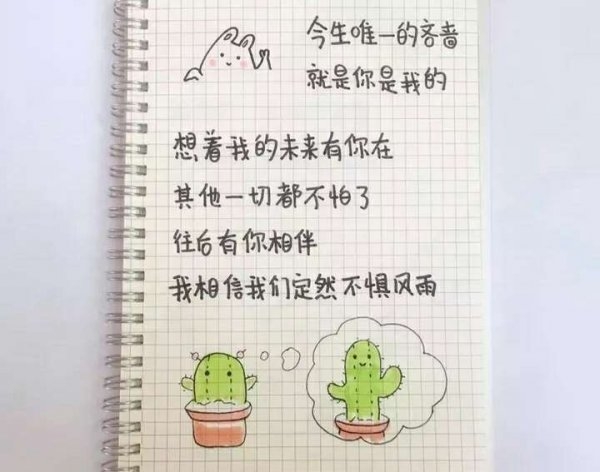 今生唯一的吝啬
就是你是我的
想着我的未来有你在
其他一切都不怕了
往后有你相伴
我相信我们定然不惧风雨